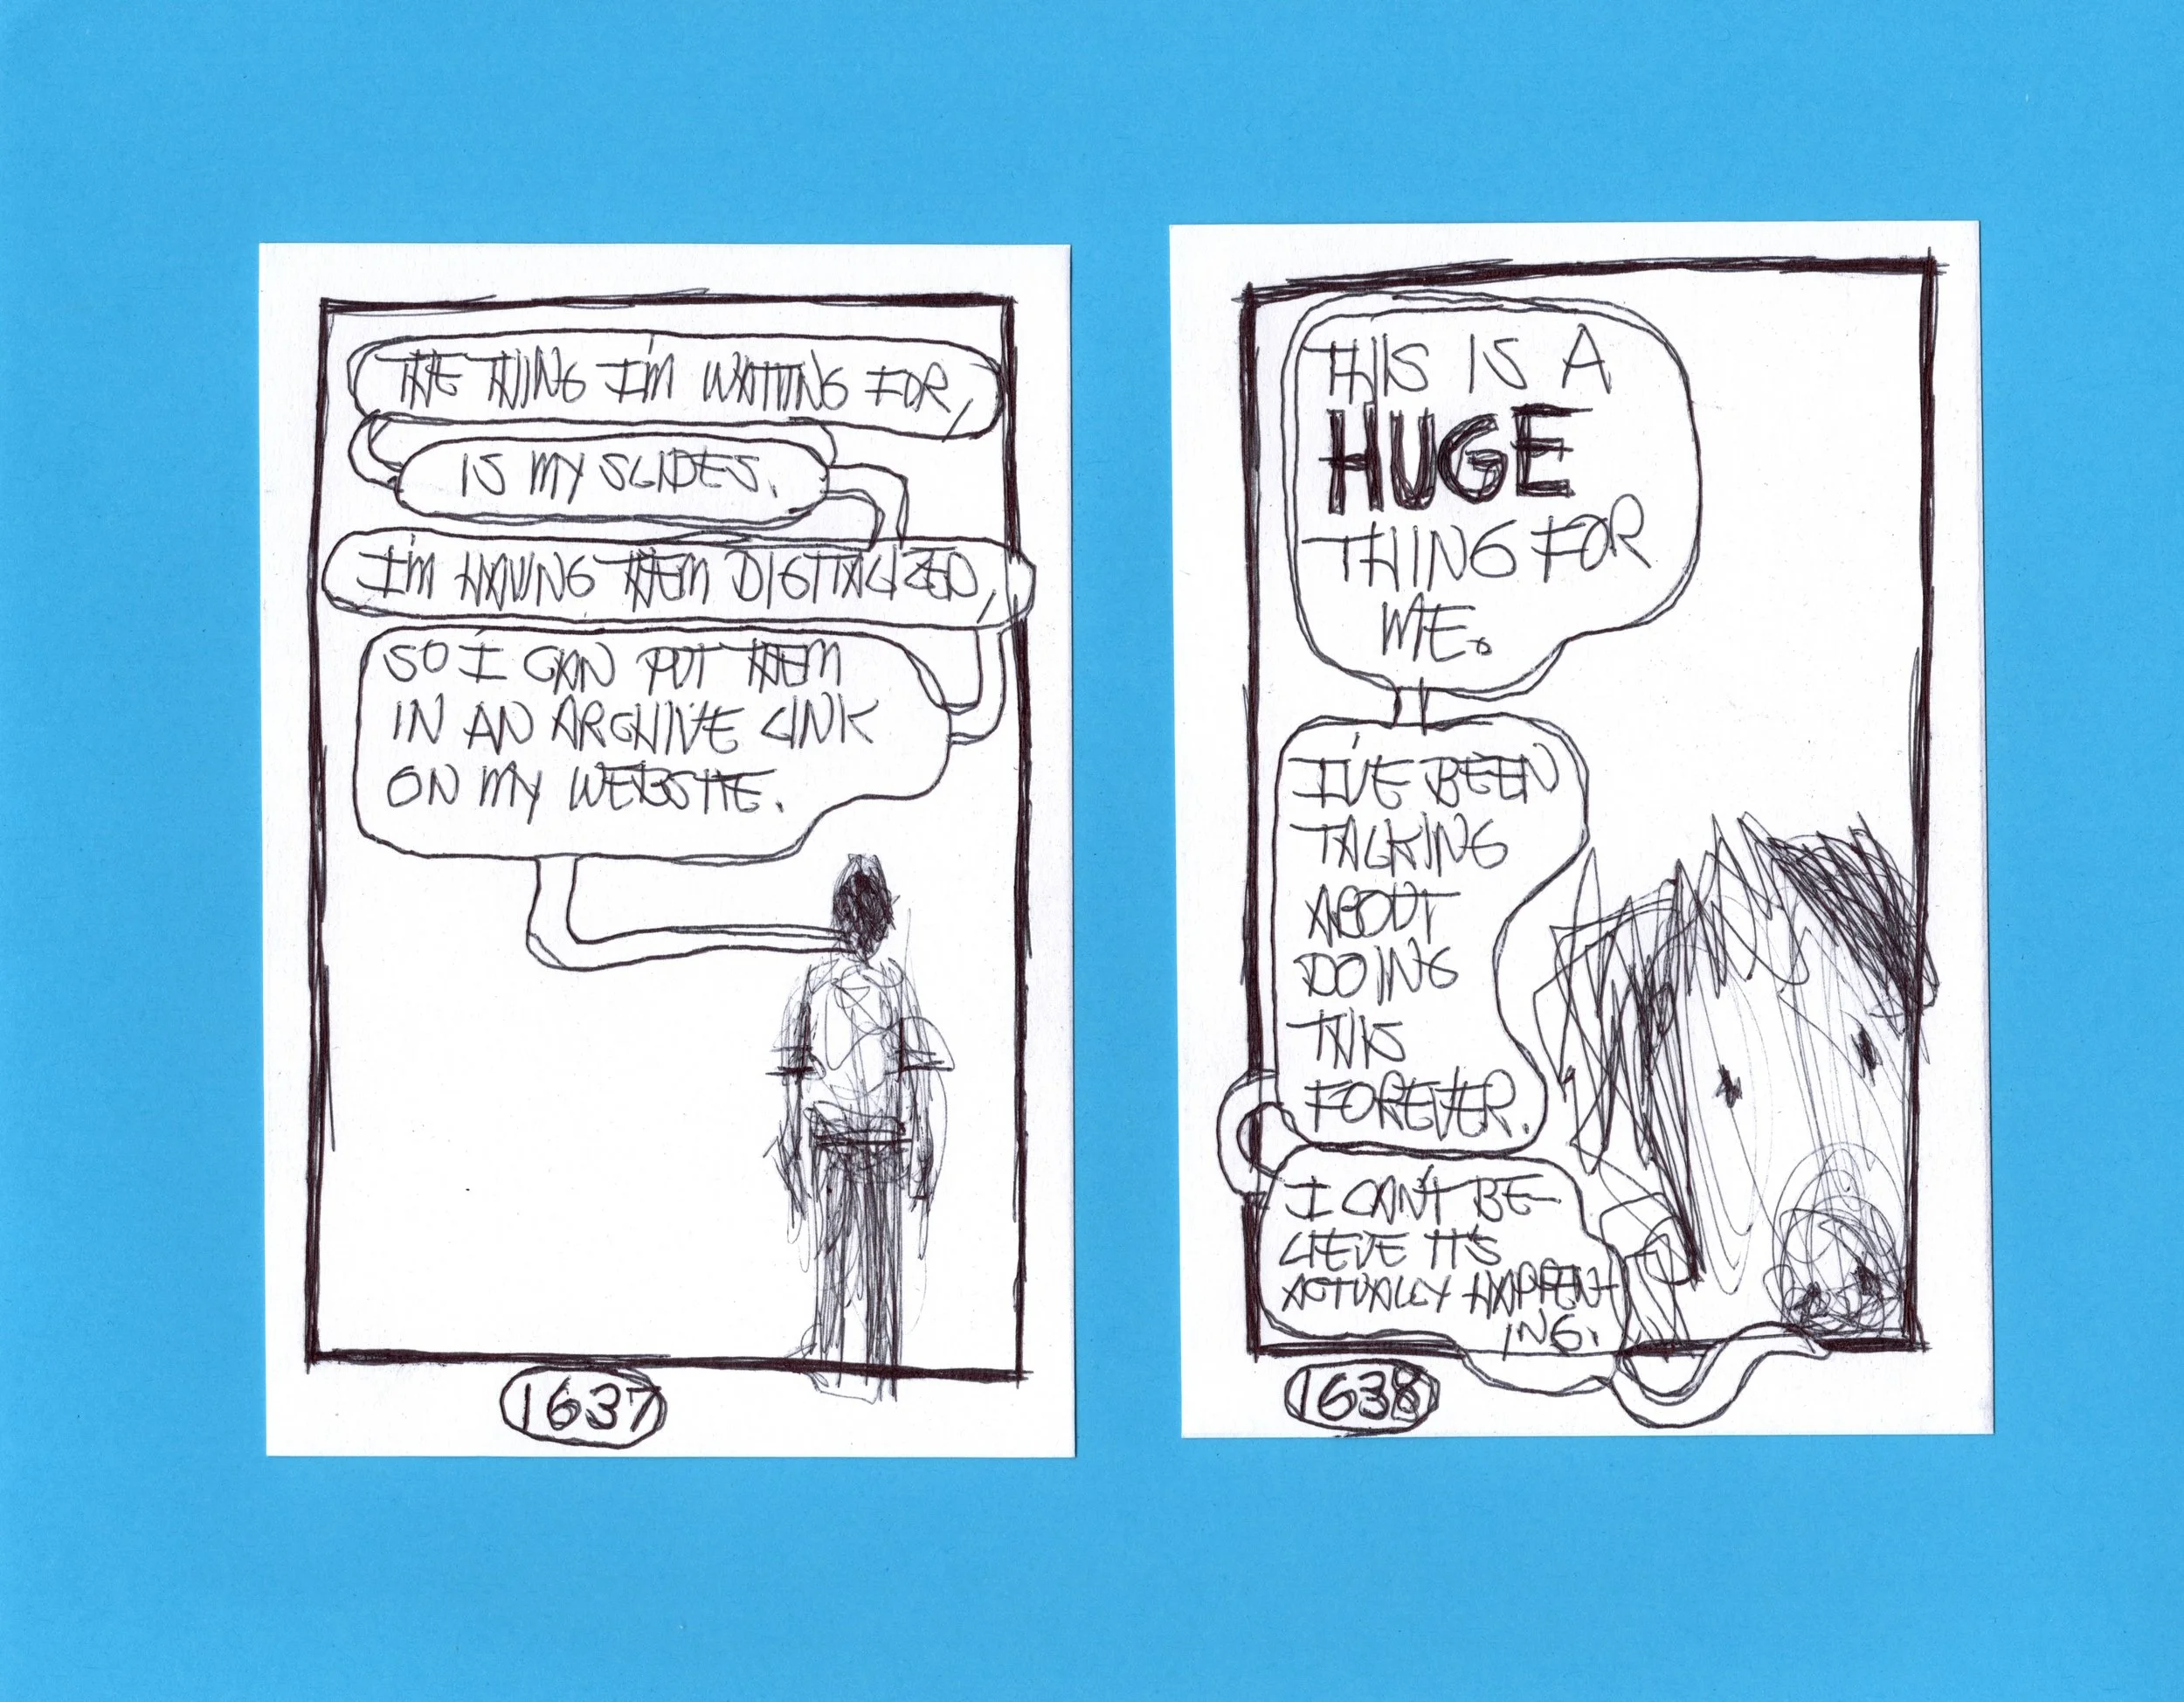 THE THING I'M WAITING FOR,
IS MY SLIDES.
I'M HAVING THEM DIGITALIZED,
SO I CAN PUT THEM
IN AN ARCHIVE LINK
ON MY WEBSITE.
1637
THIS IS A
HUGE
THING FOR
ME.
I'VE BEEN
TALKING
ABOUT
DOING
THIS
FOREVER.
I CAN'T BE-
LIEVE IT'S
ACTUALLY HAPPEN-
ING.
1638